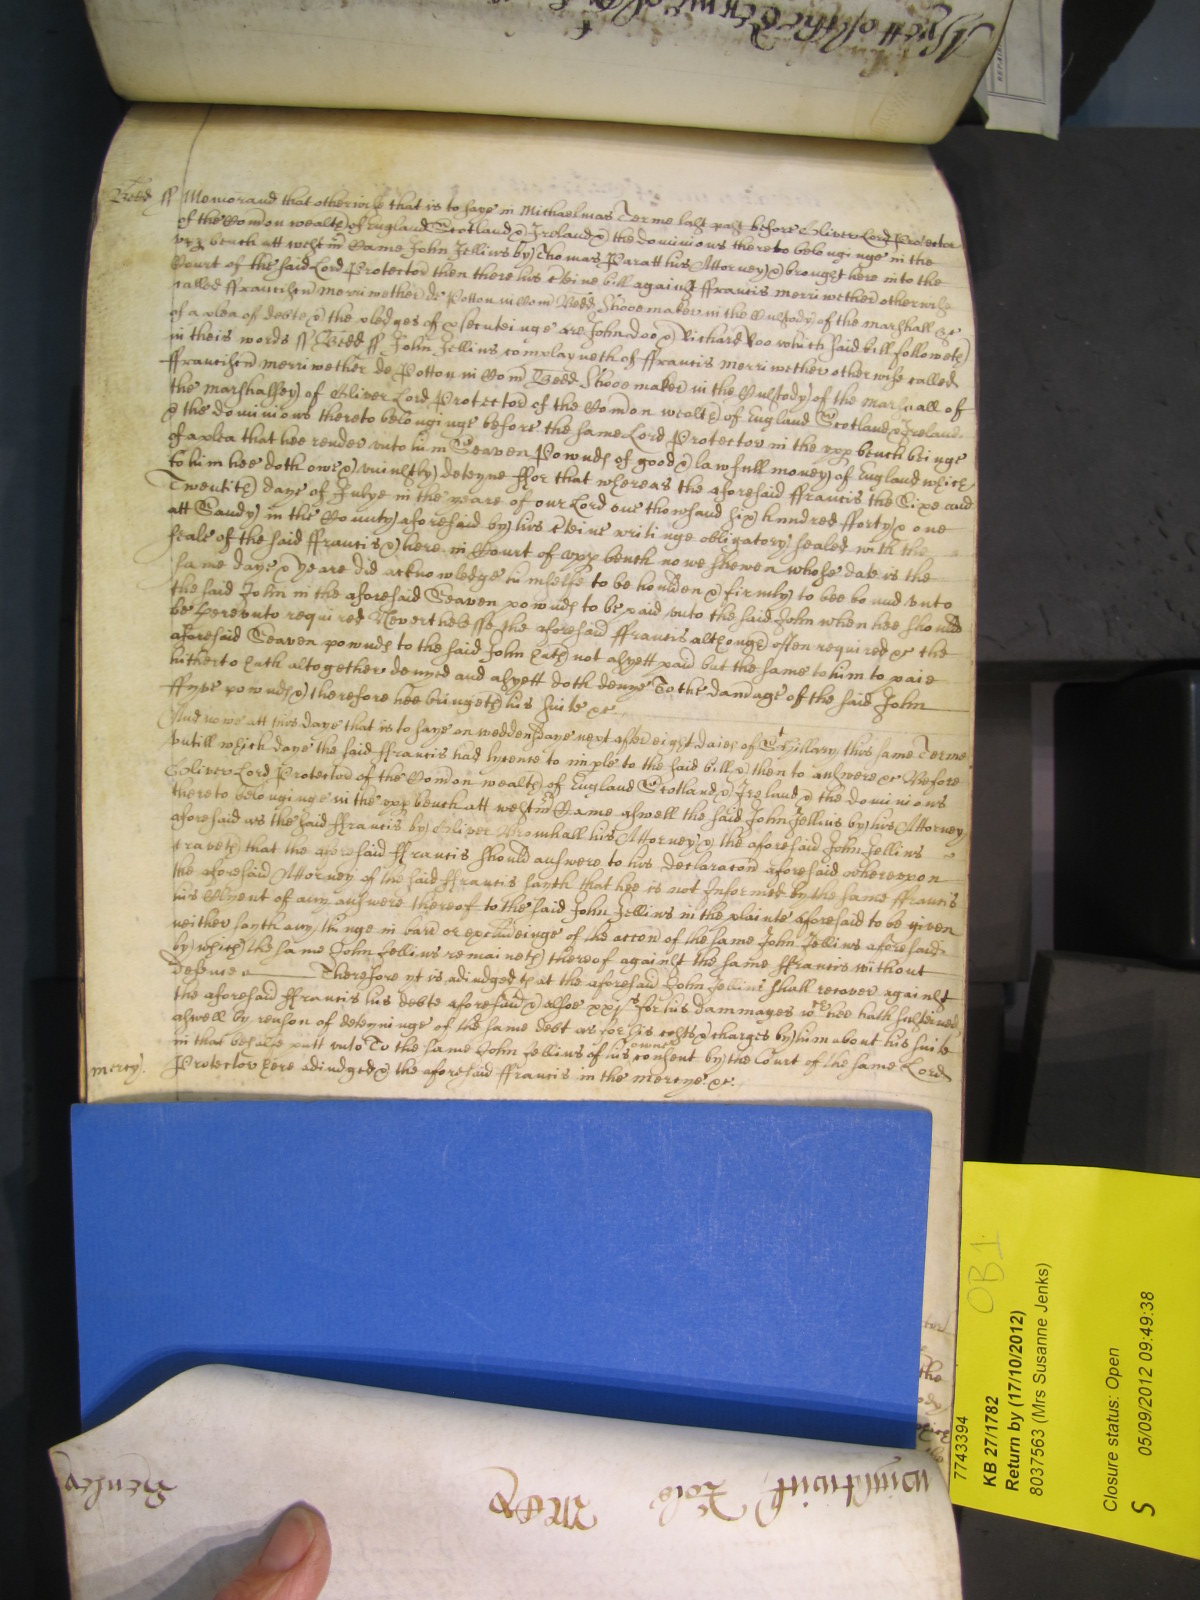 Bedd ss Memorand that otherwise that is to saye in Michaelmas Terme last past before Oliver Lord Protector
of the Comon wealth of England Scotland & Ireland & the dominions thereto belonginge in the
upp bench att westm Came John Jellins by Thomas Paratt his Attorney & brought here into the
Court of the said Lord Protector then there his Cleine bill against ffrancis merriwether otherwise
called ffranciscu merriwether de Potton in Com Bedd Shooemaker in the Custody of the marshall &c
of a plea of debte & the pledges of psecuteinge are John doo & Richard Roo which said bill followeth
in theis words ss Bedd ss John Jellins complayneth of ffrancis merriwether otherwise called
ffranciscu merriwether de Potton in Com Bedd Shooemaker in the Custody of the marshall of
the marshalsey of Oliver Lord Protector of the Comon wealth of England Scotland & Ireland
& the dominions thereto belonginge before the same Lord Protector in the upp bench beinge
of a plea that hee render unto him Seaven Pownds of good & lawfull money of England which
to him hee doth owe & uniustly deteyne ffor that whereas the aforesaid ffrancis the Sixe and
Twentith daye of Julye in the yeare of our Lord one thowsand six hundred fforty & one
att Sandy in the County aforesaid by his Cleine writinge obligatory sealed with the
seale of the said ffrancis & here in Court of upp bench nowe shewen whose date is the
same daye & yeare did acknowledge himselfe to be houlden & firmly to bee bound unto
the said John in the aforesaid Seaven pownds to be paid unto the said John when hee should
be hereunto required Neverthelesse the aforesaid ffrancis although often required &c the
aforesaid Seaven pownds to the said John hath not asyett paid but the same to him to paie
hitherto hath altogether denyed and asyett doth denye To the damage of the said John
ffyve pownds & therefore hee bringeth his suite &c
And nowe att this daye that is to saye on weddensdaye next after eight daies of St Hillary this same Terme
untill which daye the said ffrancis had lycence to imple to the said bill & then to answere &c Before
Oliver Lord Protector of the Comon wealth of England Scotland & Ireland & the dominions
thereto belonginge in the upp bench att westm Came aswell the said John Jellins by his Attorney
aforesaid as the said ffrancis by Oliver Bromhall his Attorney & the aforesaid John Jellins
prayeth that the aforesaid ffrancis should answere to his declaracon aforesaid whereupon
the aforesaid Attorney of the said ffrancis sayth that hee is not Informed by the same ffrancis
his Clyent of any answere thereof to the said John Jellins in the plainte aforesaid to be given
neither sayth any thinge in barr or excludeinge of the accon of the same John Jellins aforesaid
by which the same John Jellins remaineth thereof against the same ffrancis without
defense Therefore yt is adiudged that the aforesaid John Jellins shall recover against
the aforesaid ffrancis his debte aforesaid & alsoe xxjs for his dammages wch hee hath susteined
aswell by reason of deteyninge of the same debt as for his costs & charges by him about his suite
in that behalfe putt unto To the same John Jellins of his owne consent by the Court of the same Lord
Protector here adiudged & the aforesaid ffrancis in the mercye &c.
mercy.
OB1
7743394
KB 27/1782
Return by (17/10/2012)
8037563 (Mrs Susanne Jenks)
Closure status: Open
S
05/09/2012 09:49:38